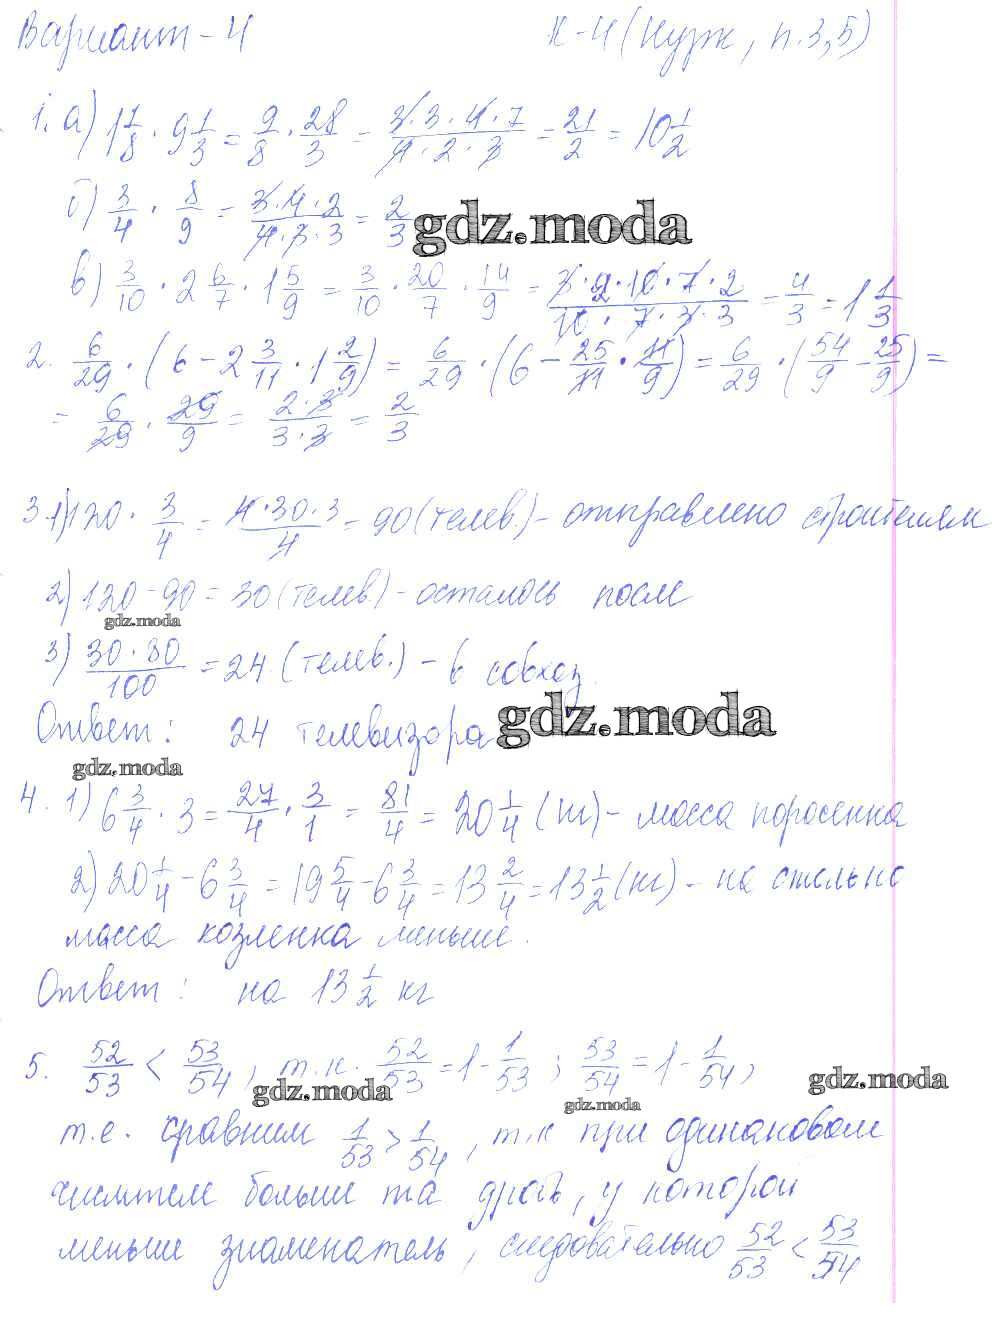 Вариант - 4 К-4 (Нурк, п. 3,5)
1. а) 1 1/8 · 9 1/3 = 9/8 · 28/3 = 3·3·4·7/4·2·3 = 21/2 = 10 1/2
б) 3/4 · 8/9 = 3·4·2/4·3·3 = 2/3
gdz.moda
в) 3/10 · 2 6/7 · 1 5/9 = 3/10 · 20/7 · 14/9 = 3·2·10·7·2/10·7·3·3 = 4/3 = 1 1/3
2. 6/29 · (6 - 2 3/11 · 1 2/9) = 6/29 · (6 - 25/11 · 11/9) = 6/29 · (54/9 - 25/9) =
= 6/29 · 29/9 = 2·3/3·3 = 2/3
3. 1) 120 · 3/4 = 4·30·3/4 = 90 (телев.) - отправлено строителям
2) 120 - 90 = 30 (телев) - осталось после
gdz.moda
3) 30·80/100 = 24 (телев.) - в совхоз.
Ответ: 24 телевизора
gdz.moda
gdz.moda
4. 1) 6 3/4 · 3 = 27/4 · 3/1 = 81/4 = 20 1/4 (кг) - масса поросенка
2) 20 1/4 - 6 3/4 = 19 5/4 - 6 3/4 = 13 2/4 = 13 1/2 (кг) - на столько
масса козленка меньше.
Ответ: на 13 1/2 кг
5. 52/53 < 53/54, т.к. 52/53 = 1 - 1/53; 53/54 = 1 - 1/54,
gdz.moda gdz.moda gdz.moda
т.е. сравним 1/53 > 1/54, т.к при одинаковом
числителе больше та дробь, у которой
меньше знаменатель, следовательно 52/53 < 53/54